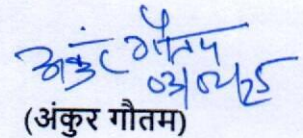 अंकुर गौतम
03/02/25
(अंकुर गौतम)